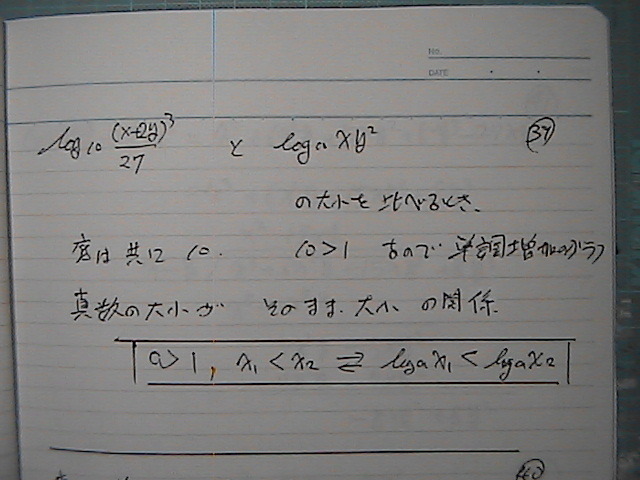 No.
DATE
log₁₀ (x+2y)³/27 と log₁₀ xy² ㊴
の大小を比べるとき、
底は共に 10. 10>1 なので 単調増加のグラフ
真数の大小が そのまま.大小 の関係.
a>1, x₁<x₂ ⇄ logₐx₁<logₐx₂
㊵